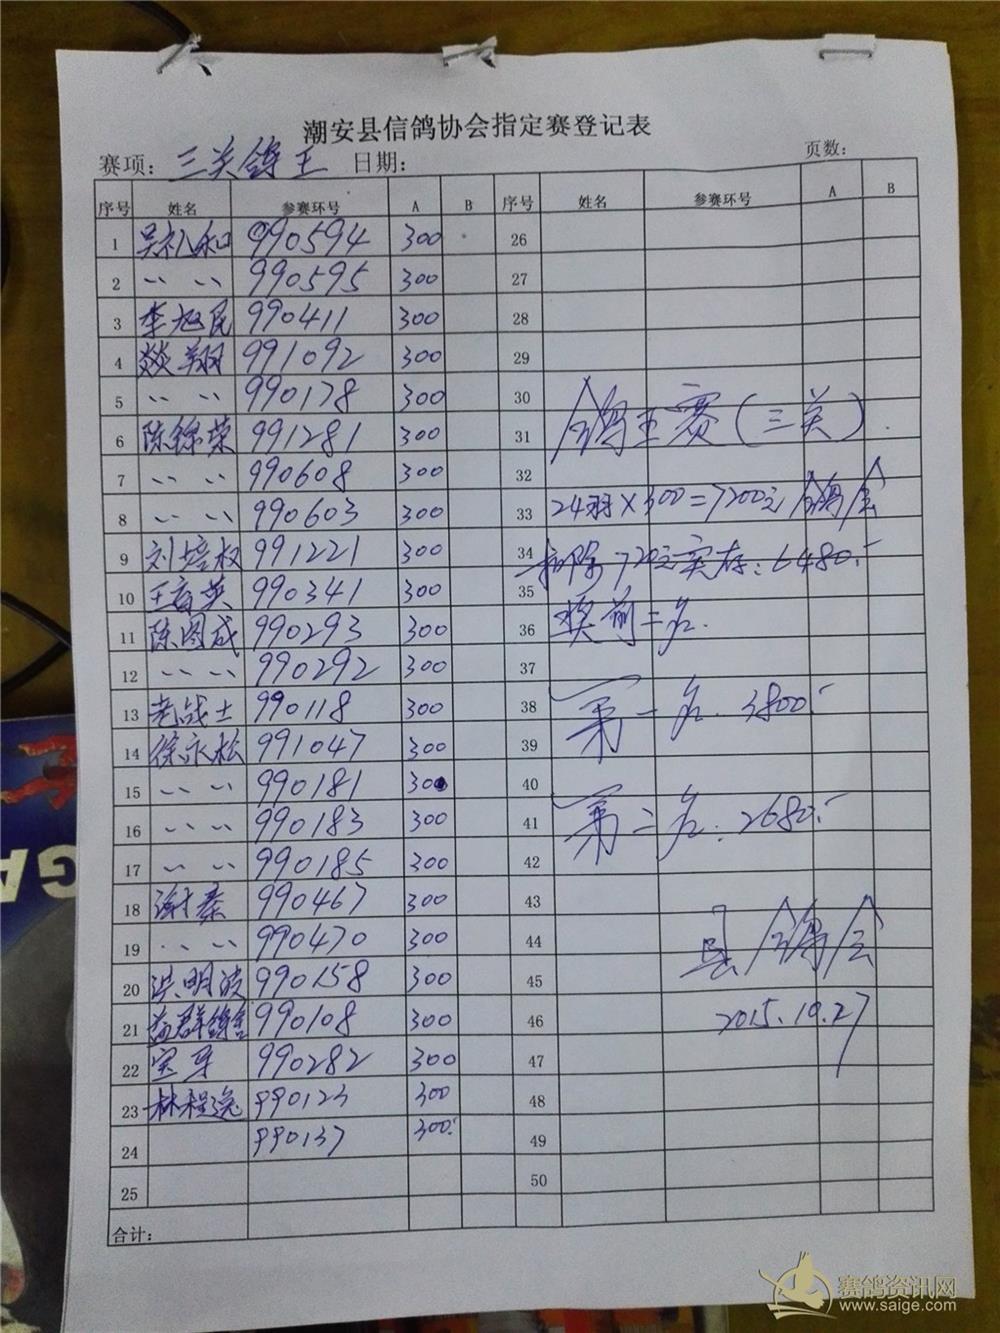 潮安县信鸽协会指定赛登记表
赛项：三关鸽王 日期： 页数：
序号 姓名 参赛环号 A B 序号 姓名 参赛环号 A B
1 吴礼和 990594 300 26
2 〃 〃 990595 300 27
3 李旭民 990411 300 28
4 燚翔 991092 300 29
5 〃 〃 990178 300 30
6 陈锦荣 991281 300 31 鸽王赛(三关)
7 〃 〃 990608 300 32
8 〃 〃 990603 300 33 24羽×300=7200元 鸽会
9 刘培权 991221 300 34 扣除720元实存：6480.-
10 王育英 990341 300 35
11 陈图成 990293 300 36 奖前二名.
12 〃 〃 990292 300 37
13 老战士 990118 300 38 第一名.3800.-
14 徐永松 991047 300 39
15 〃 〃 990181 300 40
16 〃 〃 990183 300 41 第二名:2680.-
17 〃 〃 990185 300 42
18 谢秦 990467 300 43
19 〃 〃 990470 300 44 县鸽会
20 洪明波 990158 300 45
21 益群鸽舍 990108 300 46 2015.10.27
22 990282 300 47
23 林程逸 990123 300 48
24 990137 300. 49
25 50
合计：
GA
赛鸽资讯网
www.saige.com